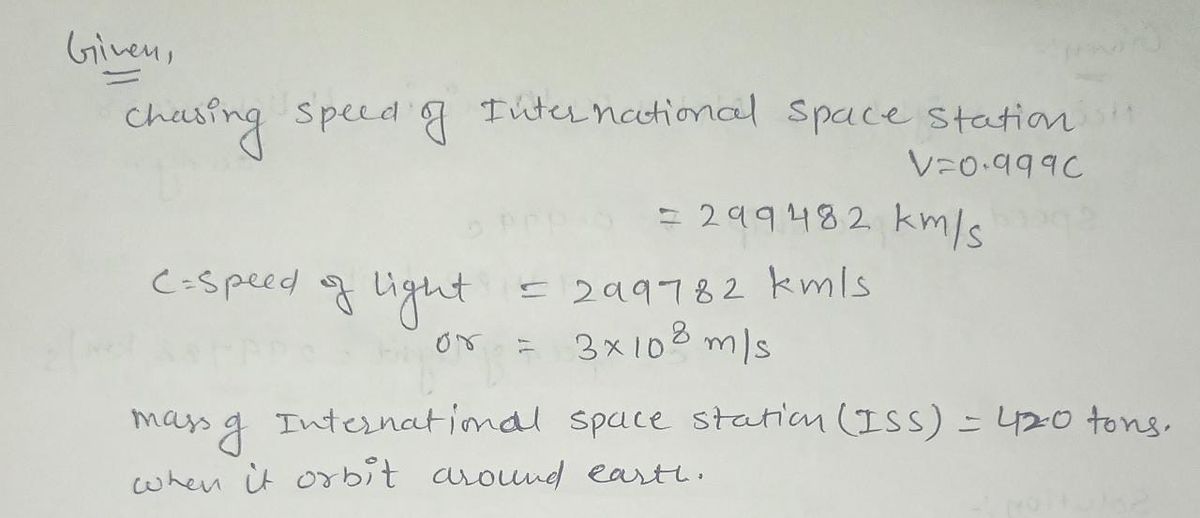 Given,
chasing speed of International space station
V=0.999C
= 299482 km/s
C=speed of light = 299782 km/s
or = 3x10⁸ m/s
mass of International space station (ISS) = 420 tons.
when it orbit around earth.